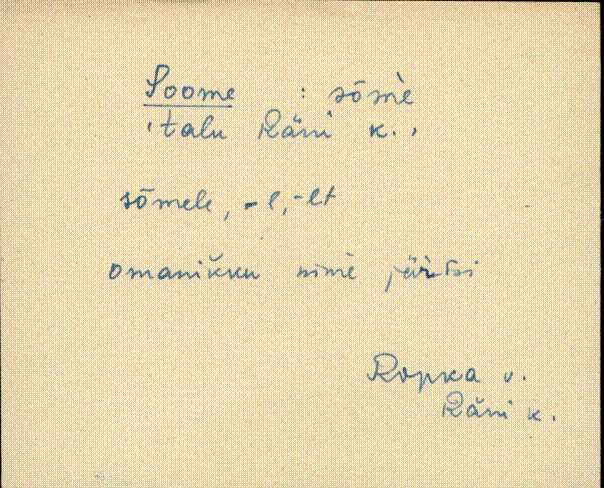 Soome : sōmè
'talu Räni k.,
sōmele, -l, -lt
omanikku nimè järsi
Ropka v.
Räni k.